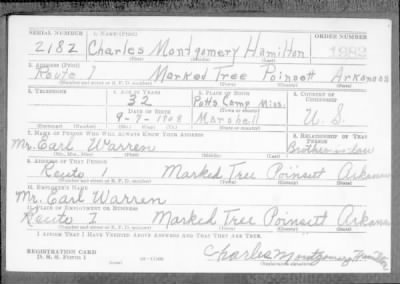 SERIAL NUMBER 1. NAME (Print) ORDER NUMBER
2182 Charles Montgomery Hamilton
(First) (Middle) (Last)
2. ADDRESS (Print)
Route 1 Marked Tree Poinsett Arkansas
(Number and street or R. F. D. number) (Town) (County) (State)
3. TELEPHONE 4. AGE IN YEARS 5. PLACE OF BIRTH 6. COUNTRY OF CITIZENSHIP
32 Potts Camp Miss.
DATE OF BIRTH
9-7-1908 Marshall U. S.
(Exchange) (Number) (Mo.) (Day) (Yr.)
7. NAME OF PERSON WHO WILL ALWAYS KNOW YOUR ADDRESS 8. RELATIONSHIP OF THAT PERSON
Mr. Earl Warren Brother in law
(Mr., Mrs., Miss) (First) (Middle) (Last)
9. ADDRESS OF THAT PERSON
Route 1 Marked Tree Poinsett Arkansas
(Number and street or R. F. D. number) (Town) (County) (State)
10. EMPLOYER'S NAME
Mr. Earl Warren
11. PLACE OF EMPLOYMENT OR BUSINESS
Route 1 Marked Tree Poinsett Arkansas
(Number and street or R. F. D. number) (Town) (County) (State)
I AFFIRM THAT I HAVE VERIFIED ABOVE ANSWERS AND THAT THEY ARE TRUE.
REGISTRATION CARD
D. S. S. FORM 1 Charles Montgomery Hamilton
(Registrant's signature)